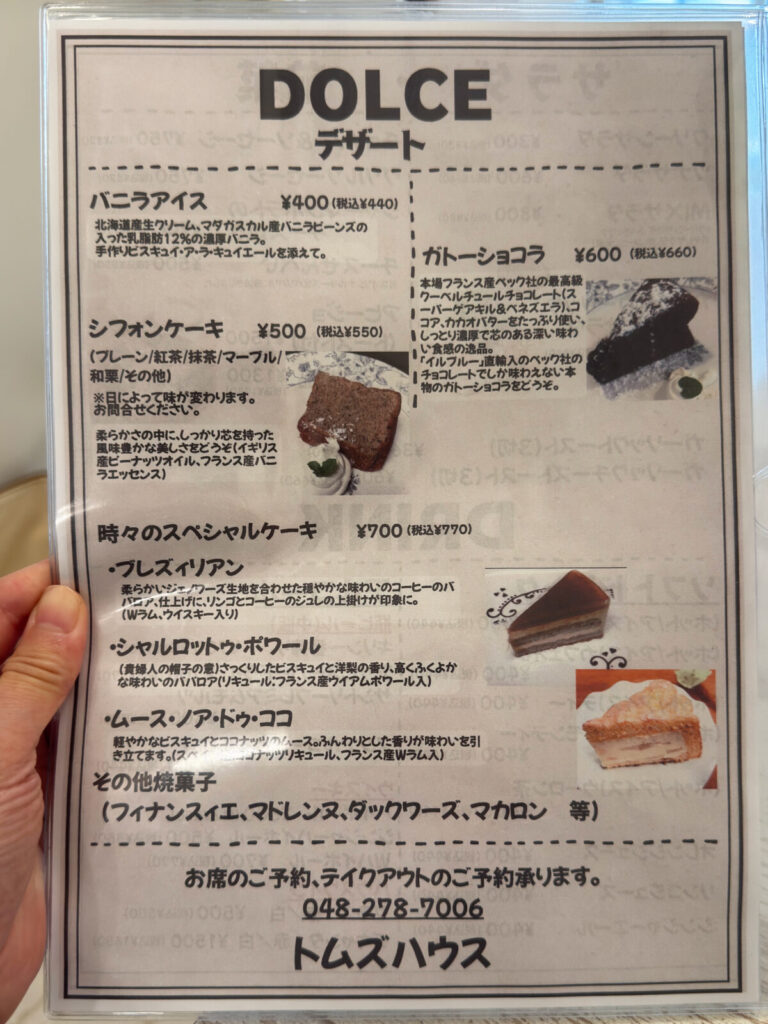 DOLCE
デザート
バニラアイス ¥400(税込¥440)
北海道産生クリーム、マダガスカル産バニラビーンズの
入った乳脂肪12%の濃厚バニラ。
手作りビスキュイ・ア・ラ・キュイエールを添えて。
シフォンケーキ ¥500 (税込¥550)
(プレーン/紅茶/抹茶/マーブル/
和栗/その他)
※日によって味が変わります。
お問合せください。
柔らかさの中に、しっかり芯を持った
風味豊かな美しさをどうぞ(イギリス
産ピーナッツオイル、フランス産バニ
ラエッセンス)
ガトーショコラ ¥600 (税込¥660)
本場フランス産ベック社の最高級
クーベルチュールチョコレート(ス
ーパーゲアキル&ベネズエラ)、コ
コア、カカオバターをたっぷり使い、
しっとり濃厚で芯のある深い味わ
い食感の逸品。
「イルプルー」直輸入のベック社の
チョコレートでしか味わえない本
物のガトーショコラをどうぞ。
時々のスペシャルケーキ ¥700 (税込¥770)
・ブレズィリアン
柔らかいジェノワーズ生地を合わせた穏やかな味わいのコーヒーのバ
バロア、仕上げに、リンゴとコーヒーのジュレの上掛けが印象に。
(Wラム、ウイスキー入り)
・シャルロットゥ・ポワール
(貴婦人の帽子の意)さっくりしたビスキュイと洋梨の香り、高くふくよか
な味わいのババロア(リキュール:フランス産ウイアムポワール入)
・ムース・ノア・ドゥ・ココ
軽やかなビスキュイとココナッツのムース。ふんわりとした香りが味わいを引
き立てます。(スペイン産ココナッツリキュール、フランス産Wラム入)
その他焼菓子
(フィナンスィエ、マドレンヌ、ダックワーズ、マカロン 等)
お席のご予約、テイクアウトのご予約承ります。
048-278-7006
トムズハウス